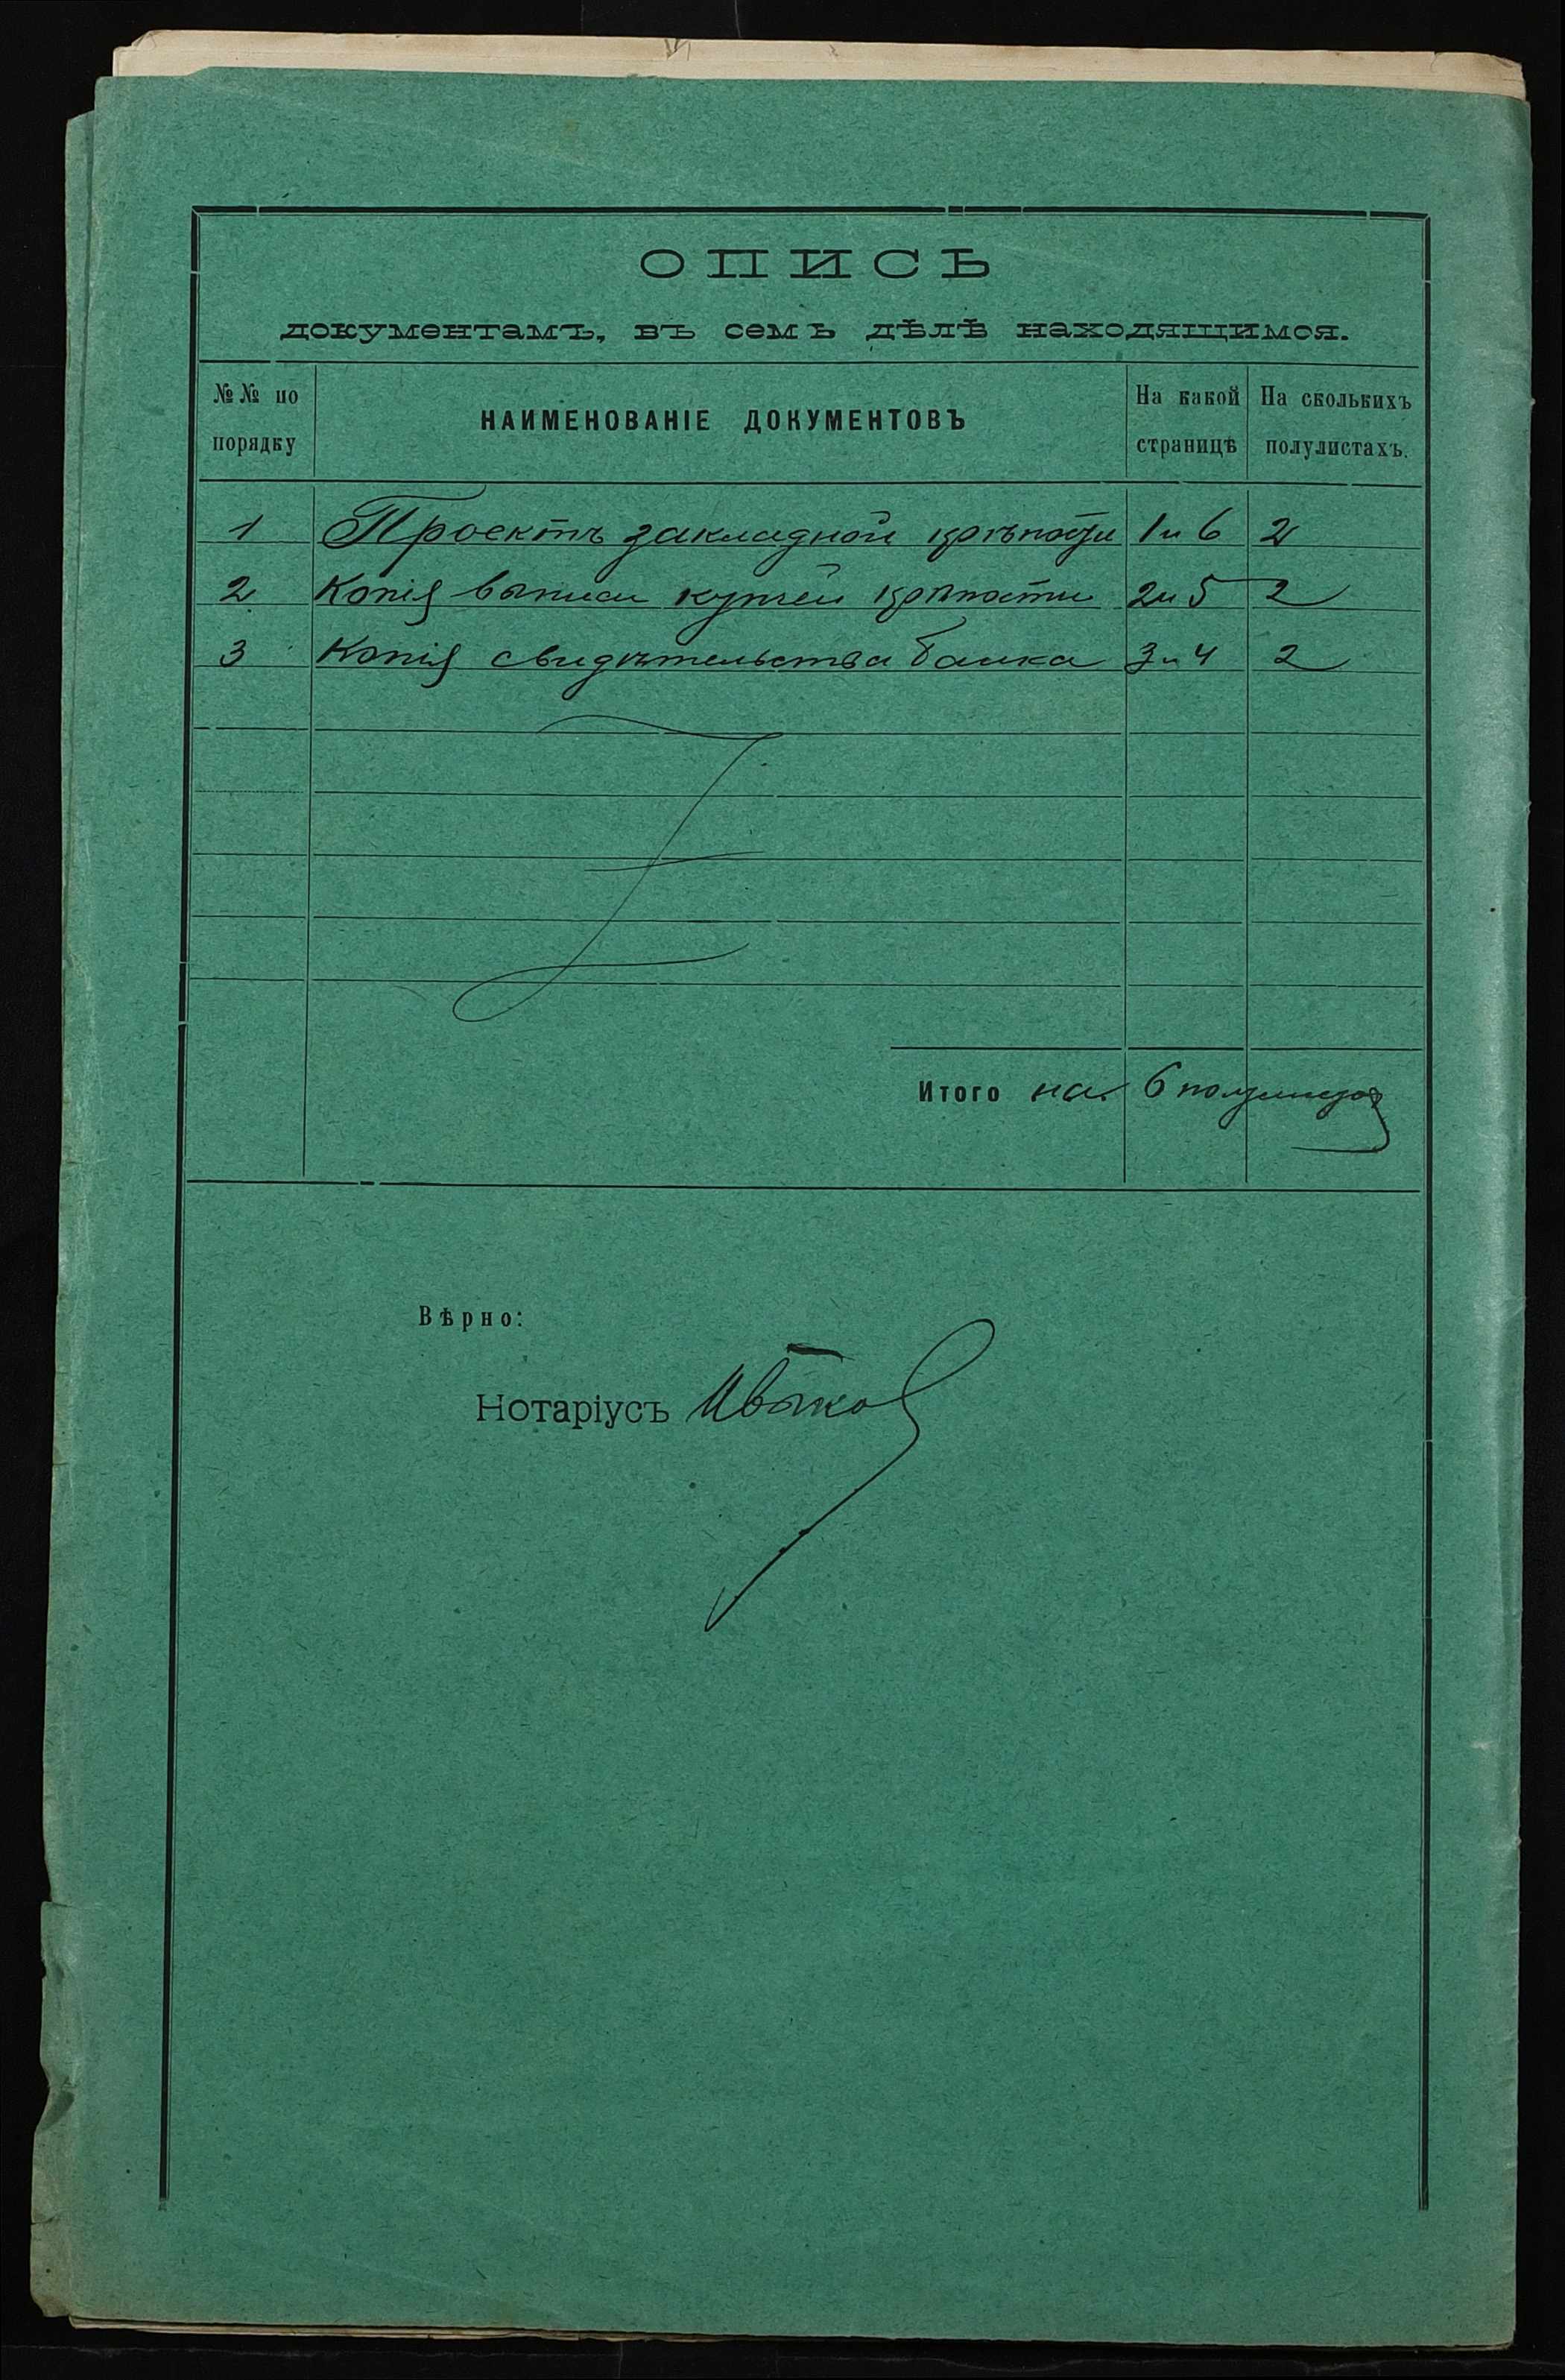 ОПИСЬ
документамъ, въ семъ дѣлѣ находящимся.
№№ по порядку
НАИМЕНОВАНІЕ ДОКУМЕНТОВЪ
На какой страницѣ
На сколькихъ полулистахъ.
1 Проектъ закладной крѣпости 1 и 6 2
2 Копія выписи купчей крѣпости 2 и 5 2
3 Копія свидѣтельства банка 3 и 4 2
Итого на 6 полулистах
Вѣрно:
Нотаріусъ